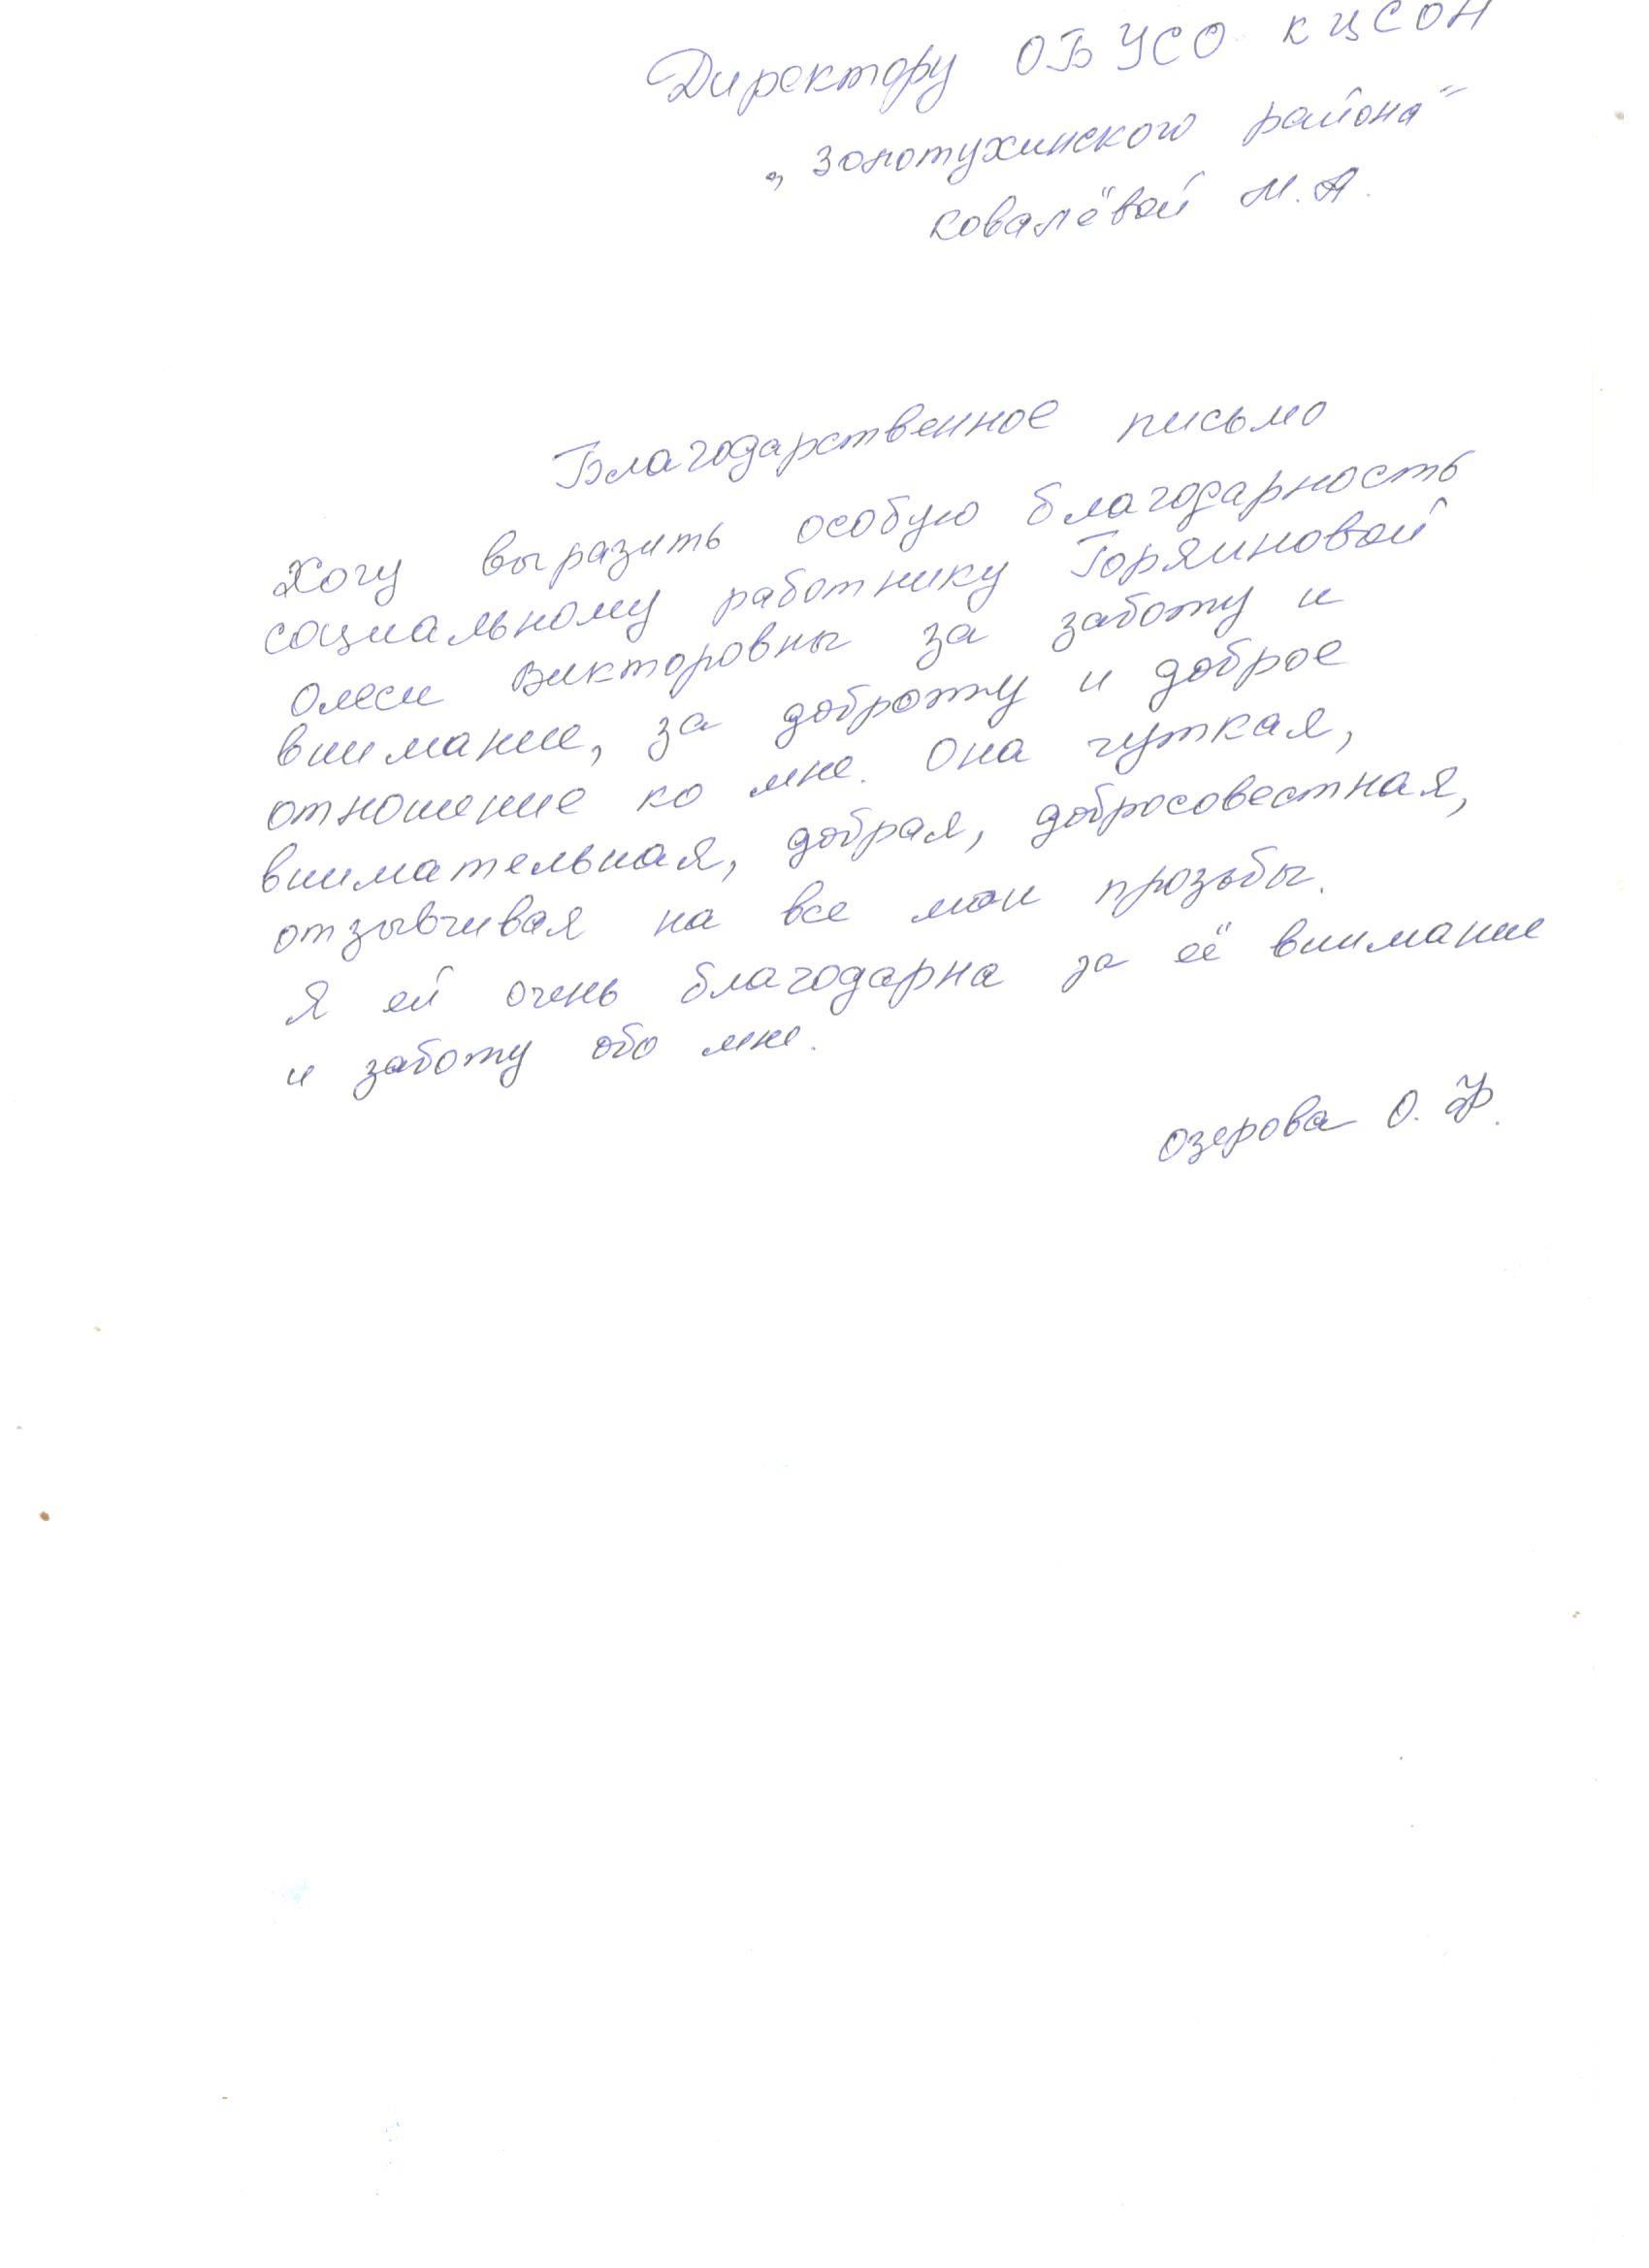 Директору ОБУСО КЦСОН
„Золотухинского района"
Ковалёвой М.А.
Благодарственное письмо
Хочу выразить особую благодарность
социальному работнику Горяиновой
Олеси Викторовны за заботу и
внимание, за доброту и доброе
отношение ко мне. Она чуткая,
внимательная, добрая, добросовестная,
отзывчивая на все мои прозьбы.
Я ей очень благодарна за её внимание
и заботу обо мне.
Озерова О. Ф.